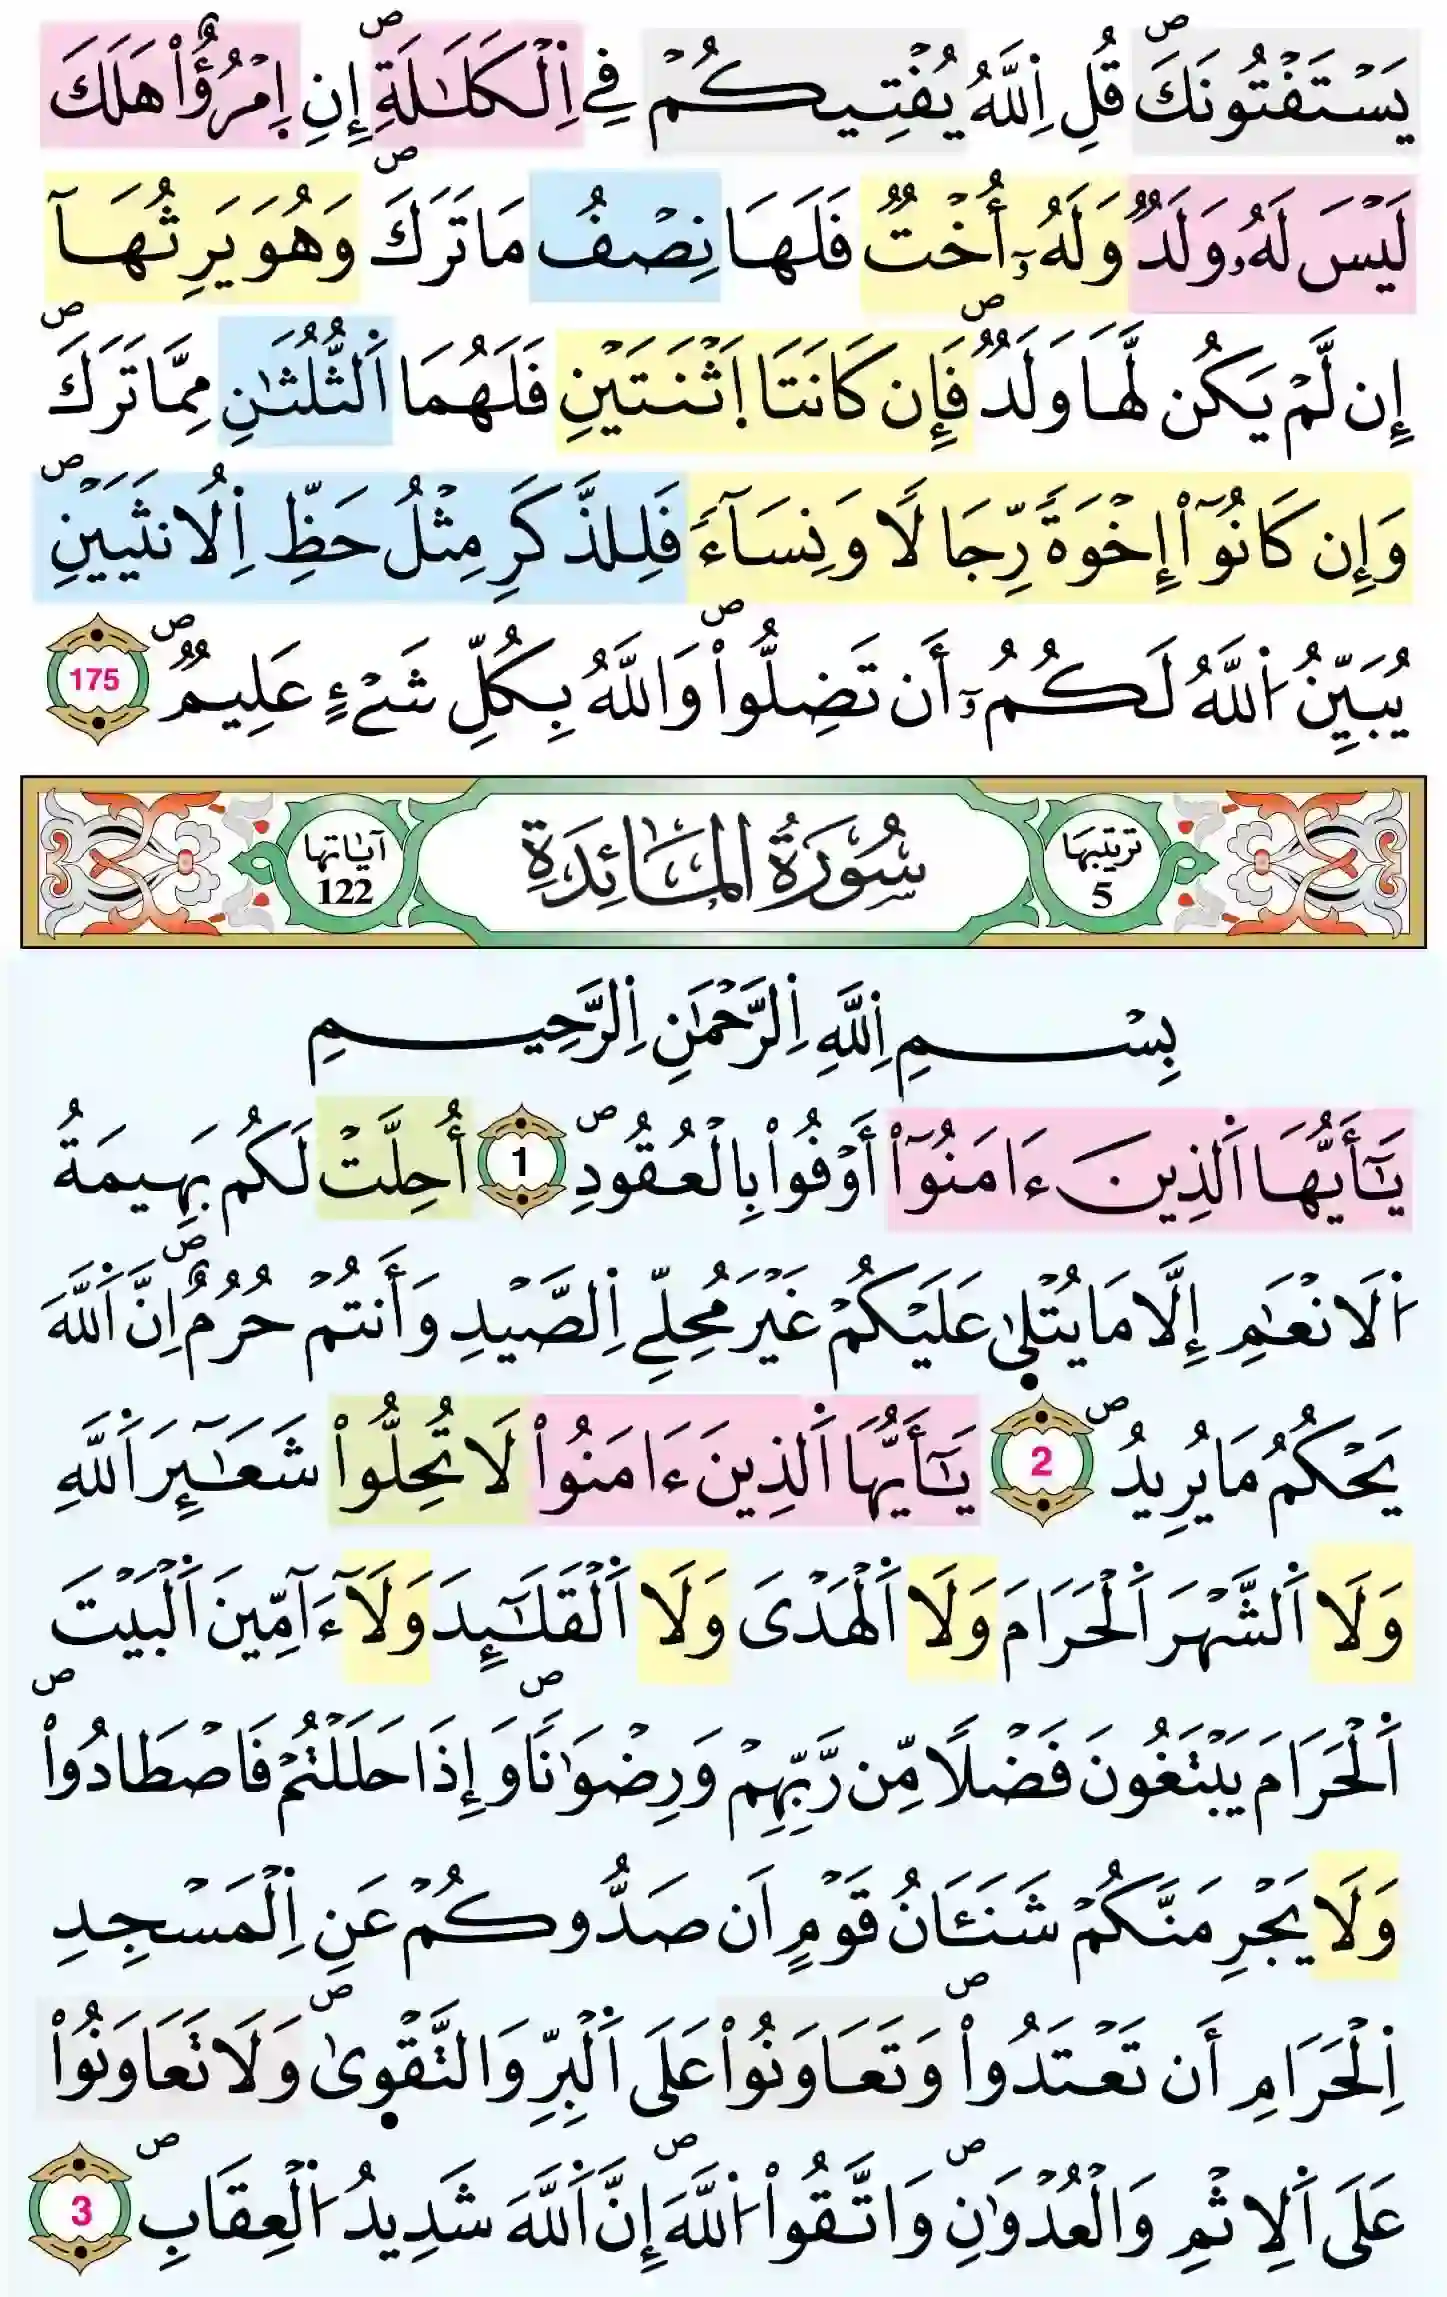 يَسْتَفْتُونَكَۖ قُلِ اِ۬للَّهُ يُفْتِيكُمْ فِے اِ۬لْكَلَٰلَةِۖ إِنِ اِ۪مْرُؤٌاْ هَلَكَ
لَيْسَ لَهُۥ وَلَدٞ وَلَهُۥٓ أُخْتٞ فَلَهَا نِصْفُ مَا تَرَكَۖ وَهُوَ يَرِثُهَآ
إِن لَّمْ يَكُن لَّهَا وَلَدٞۖ فَإِن كَانَتَا اَ۪ثْنَتَيْنِ فَلَهُمَا اَ۬لثُّلُثَٰنِ مِمَّا تَرَكَۖ
وَإِن كَانُوٓاْ إِخْوَةٗ رِّجَالٗا وَنِسَآءٗ فَلِلذَّكَرِ مِثْلُ حَظِّ اِ۬لُانثَيَيْنِۖ
يُبَيِّنُ اُ۬للَّهُ لَكُمُۥٓ أَن تَضِلُّواْۖ وَاللَّهُ بِكُلِّ شَےْءٍ عَلِيمٞۖ 175
ترتيبها 5 سُورَةُ الْمَائِدَةِ آيَاتها 122
بِسْمِ اِ۬للَّهِ اِ۬لرَّحْمَٰنِ اِ۬لرَّحِيمِ
يَٰٓأَيُّهَا اَ۬لذِينَ ءَامَنُوٓاْ أَوْفُواْ بِالْعُقُودِۖ 1 أُحِلَّتْ لَكُم بَهِيمَةُ
اُ۬لَانْعَٰمِ إِلَّا مَا يُتْل۪ىٰ عَلَيْكُمْ غَيْرَ مُحِلِّے اِ۬لصَّيْدِ وَأَنتُمْ حُرُمٌۖ اِنَّ اَ۬للَّهَ
يَحْكُمُ مَا يُرِيدُۖ 2 يَٰٓأَيُّهَا اَ۬لذِينَ ءَامَنُواْ لَا تُحِلُّواْ شَعَٰٓئِرَ اَ۬للَّهِ
وَلَا اَ۬لشَّهْرَ اَ۬لْحَرَامَ وَلَا اَ۬لْهَدْىَ وَلَا اَ۬لْقَلَٰٓئِدَ وَلَآ ءَآمِّينَ اَ۬لْبَيْتَ
اَ۬لْحَرَامَ يَبْتَغُونَ فَضْلٗا مِّن رَّبِّهِمْ وَرِضْوَٰناٗۖ وَإِذَا حَلَلْتُمْ فَاصْطَادُواْۖ
وَلَا يَجْرِمَنَّكُمْ شَنَـَٔانُ قَوْمٍ اَن صَدُّوكُمْ عَنِ اِ۬لْمَسْجِدِ
اِ۬لْحَرَامِ أَن تَعْتَدُواْۖ وَتَعَاوَنُواْ عَلَى اَ۬لْبِرِّ وَالتَّقْو۪ىٰۖ وَلَا تَعَاوَنُواْ
عَلَى اَ۬لِاثْمِ وَالْعُدْوَٰنِۖ وَاتَّقُواْ اُ۬للَّهَۖ إِنَّ اَ۬للَّهَ شَدِيدُ اُ۬لْعِقَابِۖ 3